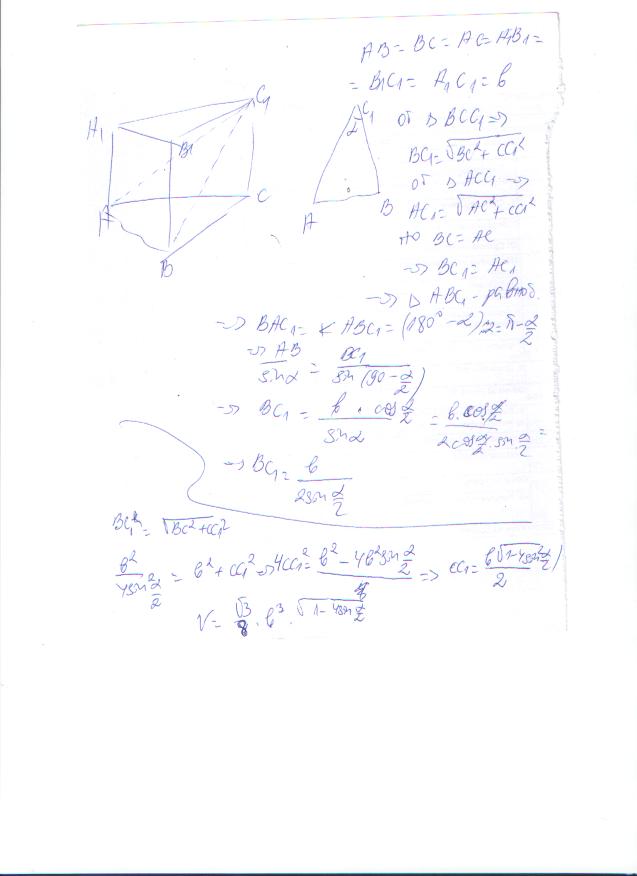 AB = BC = AC = A₁B₁ =
= B₁C₁ = A₁C₁ = b
A₁
C₁
B₁
A
C
B
C₁
α
A
B
от △ BCC₁ ⇒
BC₁ = √BC² + CC₁²
от △ ACC₁ ⇒
AC₁ = √AC² + CC₁²
но BC = AC
⇒ BC₁ = AC₁
⇒ △ ABC₁ - равноб.
⇒ BAC₁ = ∢ ABC₁ = (180° - α) : 2 = π - α/2
⇒ AB / sin α = BC₁ / sin (90 - α/2)
⇒ BC₁ = b . cos α/2 / sin α = b . cos α/2 / 2 cos α/2 . sin α/2 =
⇒ BC₁ = b / 2 sin α/2
BC₁² = √BC² + CC₁²
b² / 4 sin² α/2 = b² + CC₁² ⇒ 4CC₁² = b² - 4b² sin² α/2 / ⇒ CC₁ = b √1 - 4 sin² α/2 / 2
V = √3/8 . b³ . √1 - 4 sin α/2